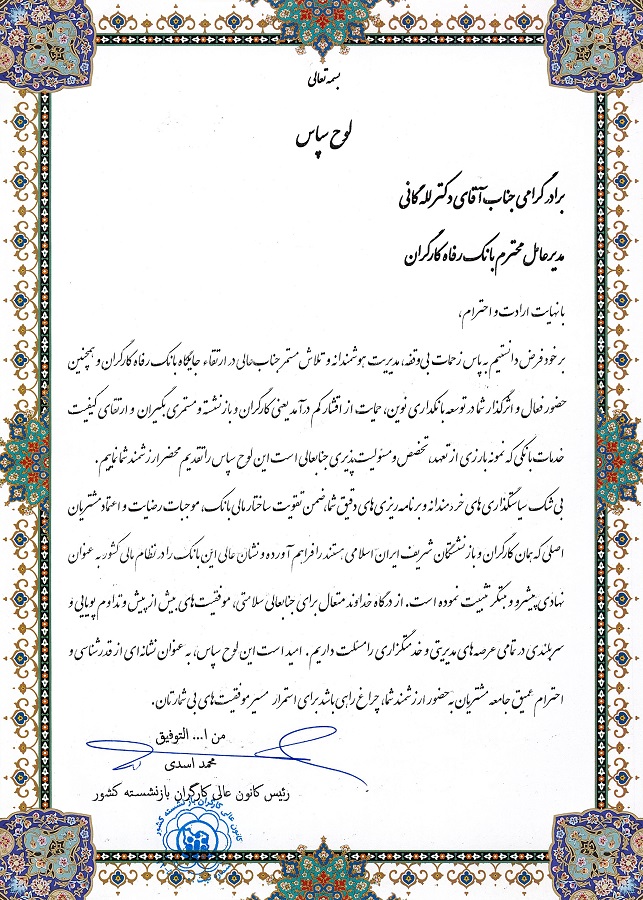 بسمه تعالی
لوح سپاس
برادر گرامی جناب آقای دکتر لله گانی
مدیرعامل محترم بانک رفاه کارگران
با نهایت ارادت و احترام،
بر خود فرض دانستیم به پاس زحمات بی وقفه، مدیریت هوشمندانه و تلاش مستمر جنابعالی در ارتقاء جایگاه بانک رفاه کارگران و همچنین
حضور فعال و اثرگذار شما در توسعه بانکداری نوین، حمایت از اقشار کم درآمد یعنی کارگران و بازنشسته و مستمری بگیران و ارتقای کیفیت
خدمات بانکی که نمونه بارزی از تعهد، تخصص و مسئولیت پذیری جنابعالی است این لوح سپاس را تقدیم محضر ارزشمند شما نماییم.
بی شک سیاستگذاری های خردمندانه و برنامه ریزی های دقیق شما، ضمن تقویت ساختار مالی بانک، موجبات رضایت و اعتماد مشتریان
اصلی که همان کارگران و بازنشستگان شریف ایران اسلامی هستند را فراهم آورده و نشان عالی این بانک را در نظام مالی کشور به عنوان
نهادی پیشرو و مبتکر تثبیت نموده است. از درگاه خداوند متعال برای جنابعالی سلامتی، موفقیت های بیش از پیش و تداوم پویایی و
سربلندی در تمامی عرصه های مدیریتی و خدمتگزاری را مسئلت داریم. امید است این لوح سپاس، به عنوان نشانه ای از قدرشناسی و
احترام عمیق جامعه مشتریان به حضور ارزشمند شما، چراغ راهی باشد برای استمرار مسیر موفقیت های بی شمارتان.
من ا... التوفیق
محمد اسدی
رئیس کانون عالی کارگران بازنشسته کشور
کانون عالی کارگران بازنشسته کشور